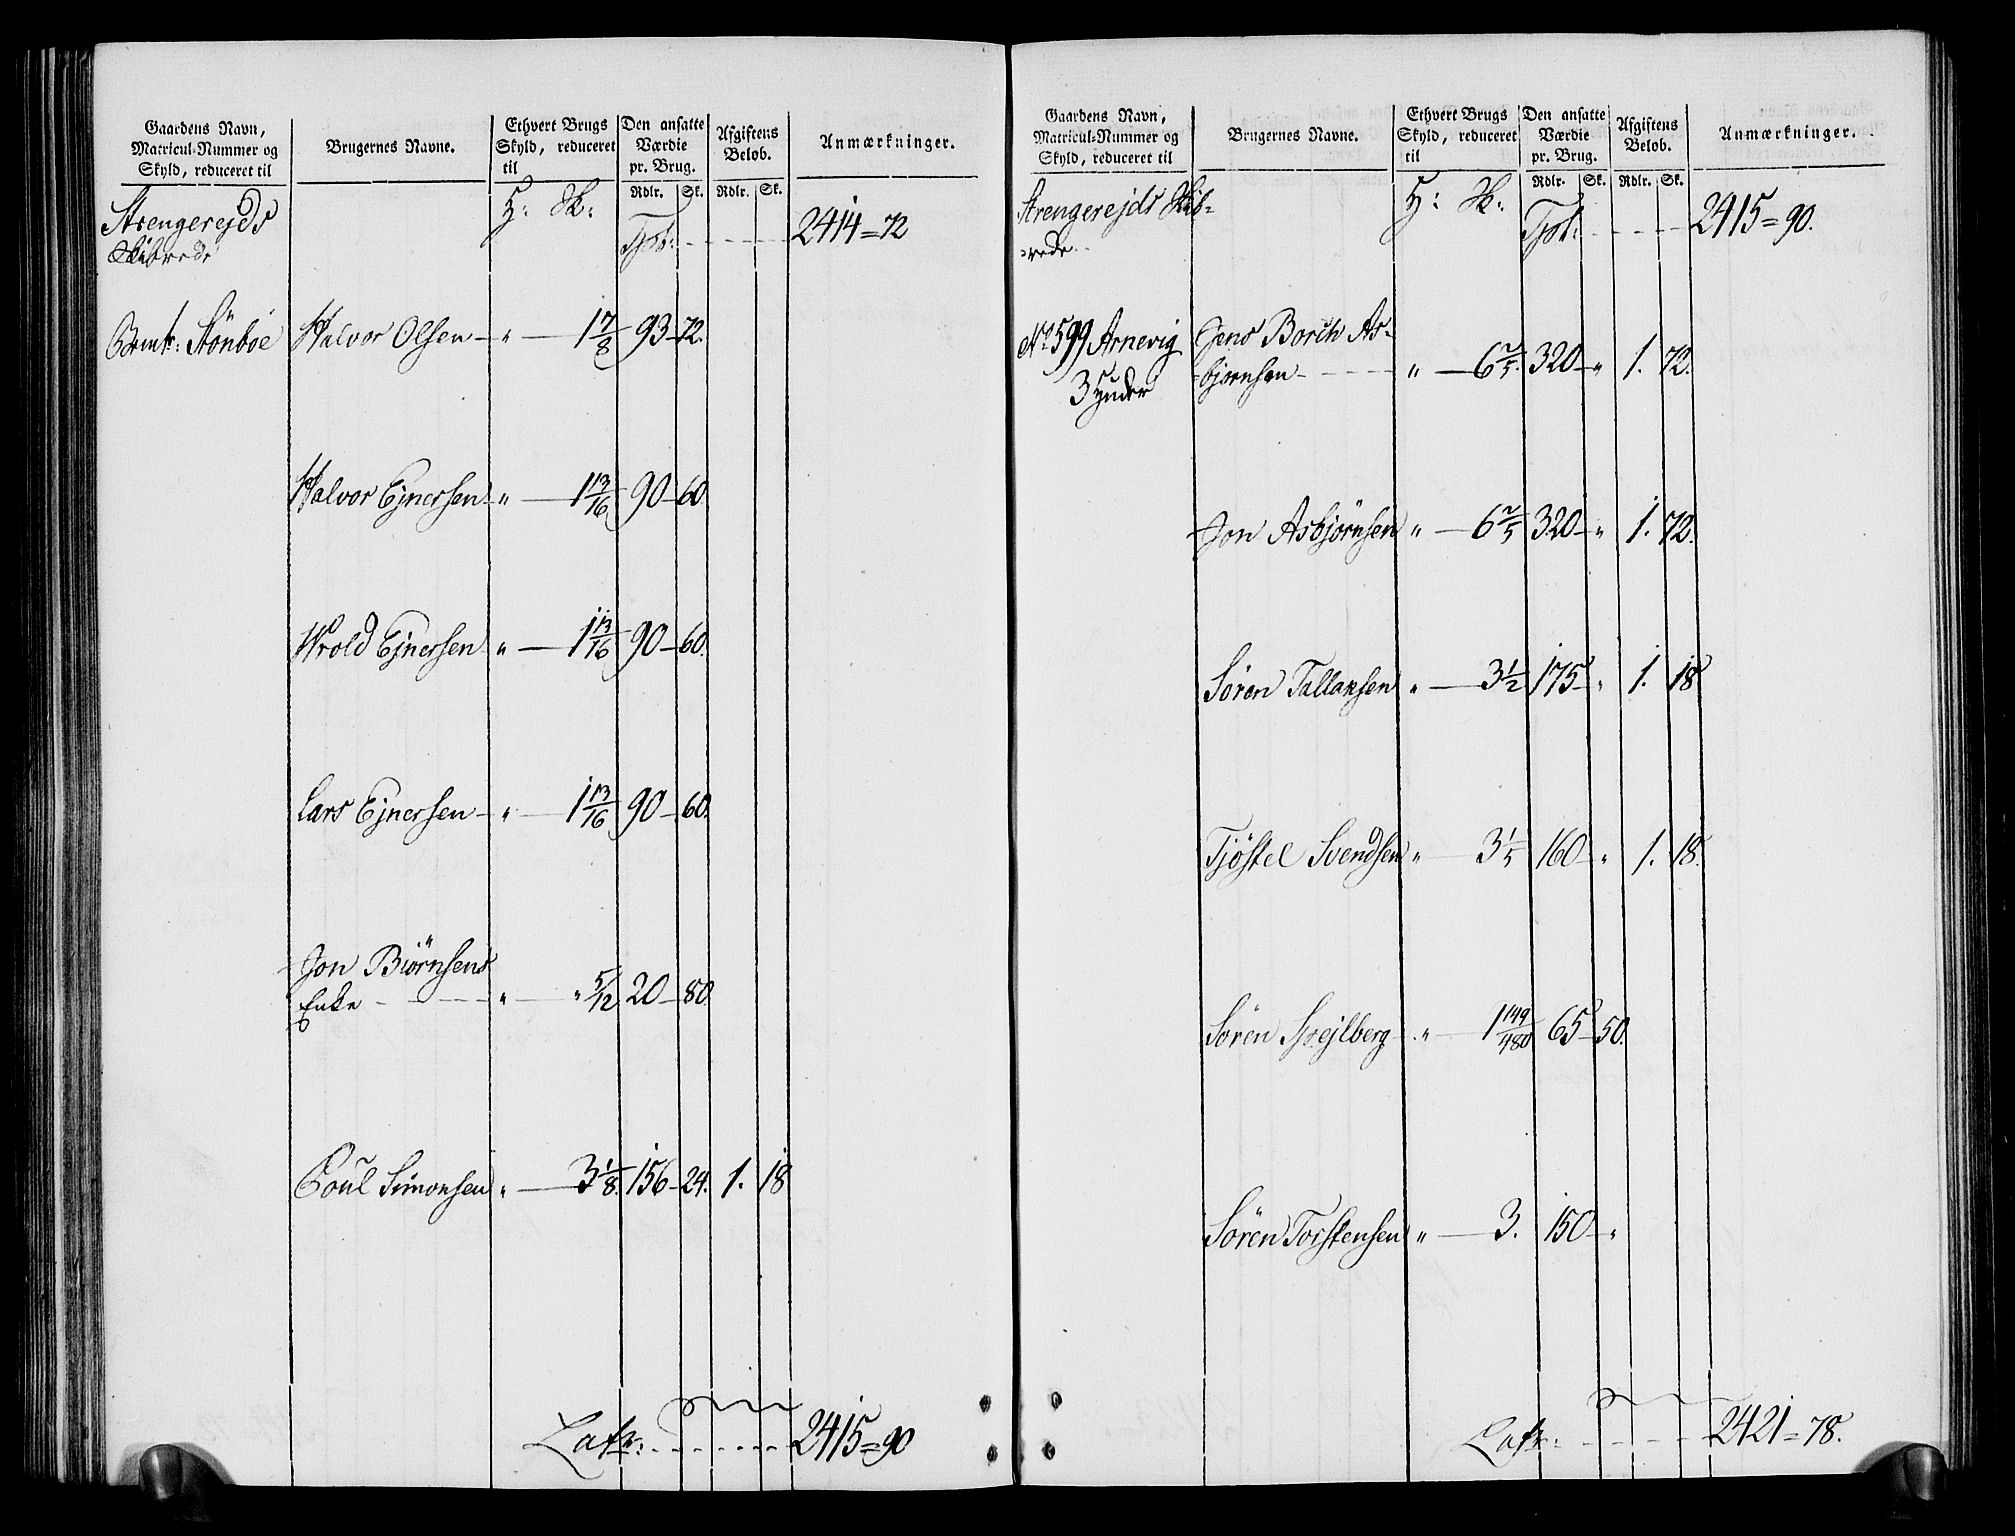 Gaardens Navn,
Matricul-Nummer og
Skyld, reduceret til
Brugernes Navne.
Ethvert Brugs
Skyld, reduceret
til
Den ansatte
Værdie
pr. Brug.
Rdlr. Sk.
Afgiftens
Beløb.
Rdlr. Sk.
Anmærkninger.
Strengerejds
Skibrede
H: Sk:
Tpt: 2414=72
Halvor Olsen " 1 7/8 93 72.
Halvor Ejnersen " 1 13/16 90 60.
Wrold Ejnersen " 1 13/16 90 60.
Lars Ejnersen " 1 13/16 90 60.
Jon Biörnsens
Enke " " 5/12 20 80.
Poul Simonsen " 3 1/8. 156 24. 1. 18
Latr: 2415=90
Gaardens Navn,
Matricul-Nummer og
Skyld, reduceret til
Brugernes Navne.
Ethvert Brugs
Skyld, reduceret
til
Den ansatte
Værdie
pr. Brug.
Rdlr. Sk.
Afgiftens
Beløb.
Rdlr. Sk.
Anmærkninger.
Strengerejds Skib-
rede
H: Sk:
Tpt: 2415=90.
No 599 Arnevig Jens Borch As-
3 Huder bjørnsen " 6 2/5. 320 " 1. 72.
Jon Asbjørnsen " 6 2/5 320 " 1. 72.
Sören Tallaksen " 3 1/2 175 " 1. 18
Tjöstel Svendsen " 3 1/5 160 " 1. 18.
Sören Spejlberg " 1 149/480 65 50.
Sören Torstensen " 3. 150 "
Latr: 2421=78.